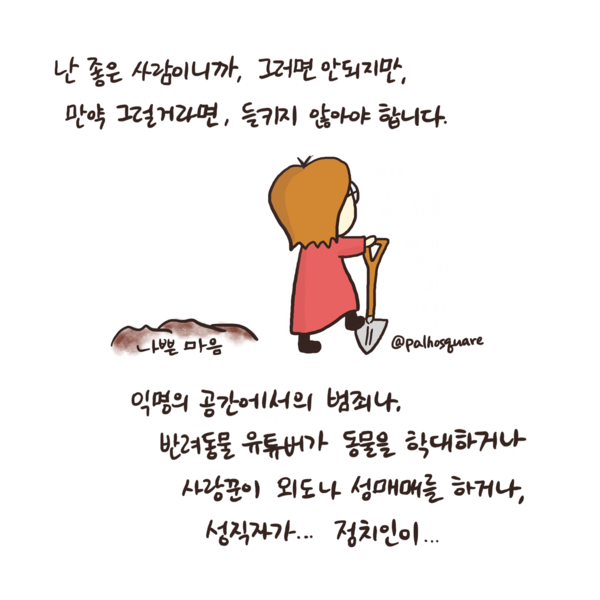 난 좋은 사람이니까, 그러면 안되지만,
만약 그럴거라면, 들키지 않아야 합니다.
나쁜 마음
@palhosquare
익명의 공간에서의 범죄나,
반려동물 유튜버가 동물을 학대하거나
사랑꾼이 외도나 성매매를 하거나,
성직자가... 정치인이...